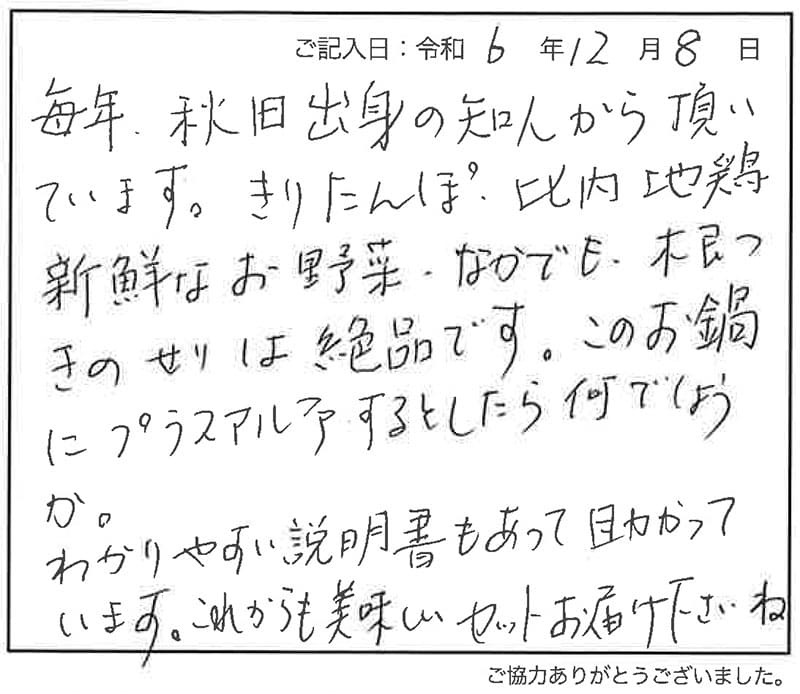 ご記入日：令和 6 年 12 月 8 日
毎年、秋田出身の知人から頂い
ています。きりたんぽ、比内地鶏
新鮮なお野菜、なかでも、根つ
きのせりは絶品です。このお鍋
にプラスアルファするとしたら何でしょう
か。
わかりやすい説明書もあって助かって
います。これからも美味しいセットお届け下さいね
ご協力ありがとうございました。